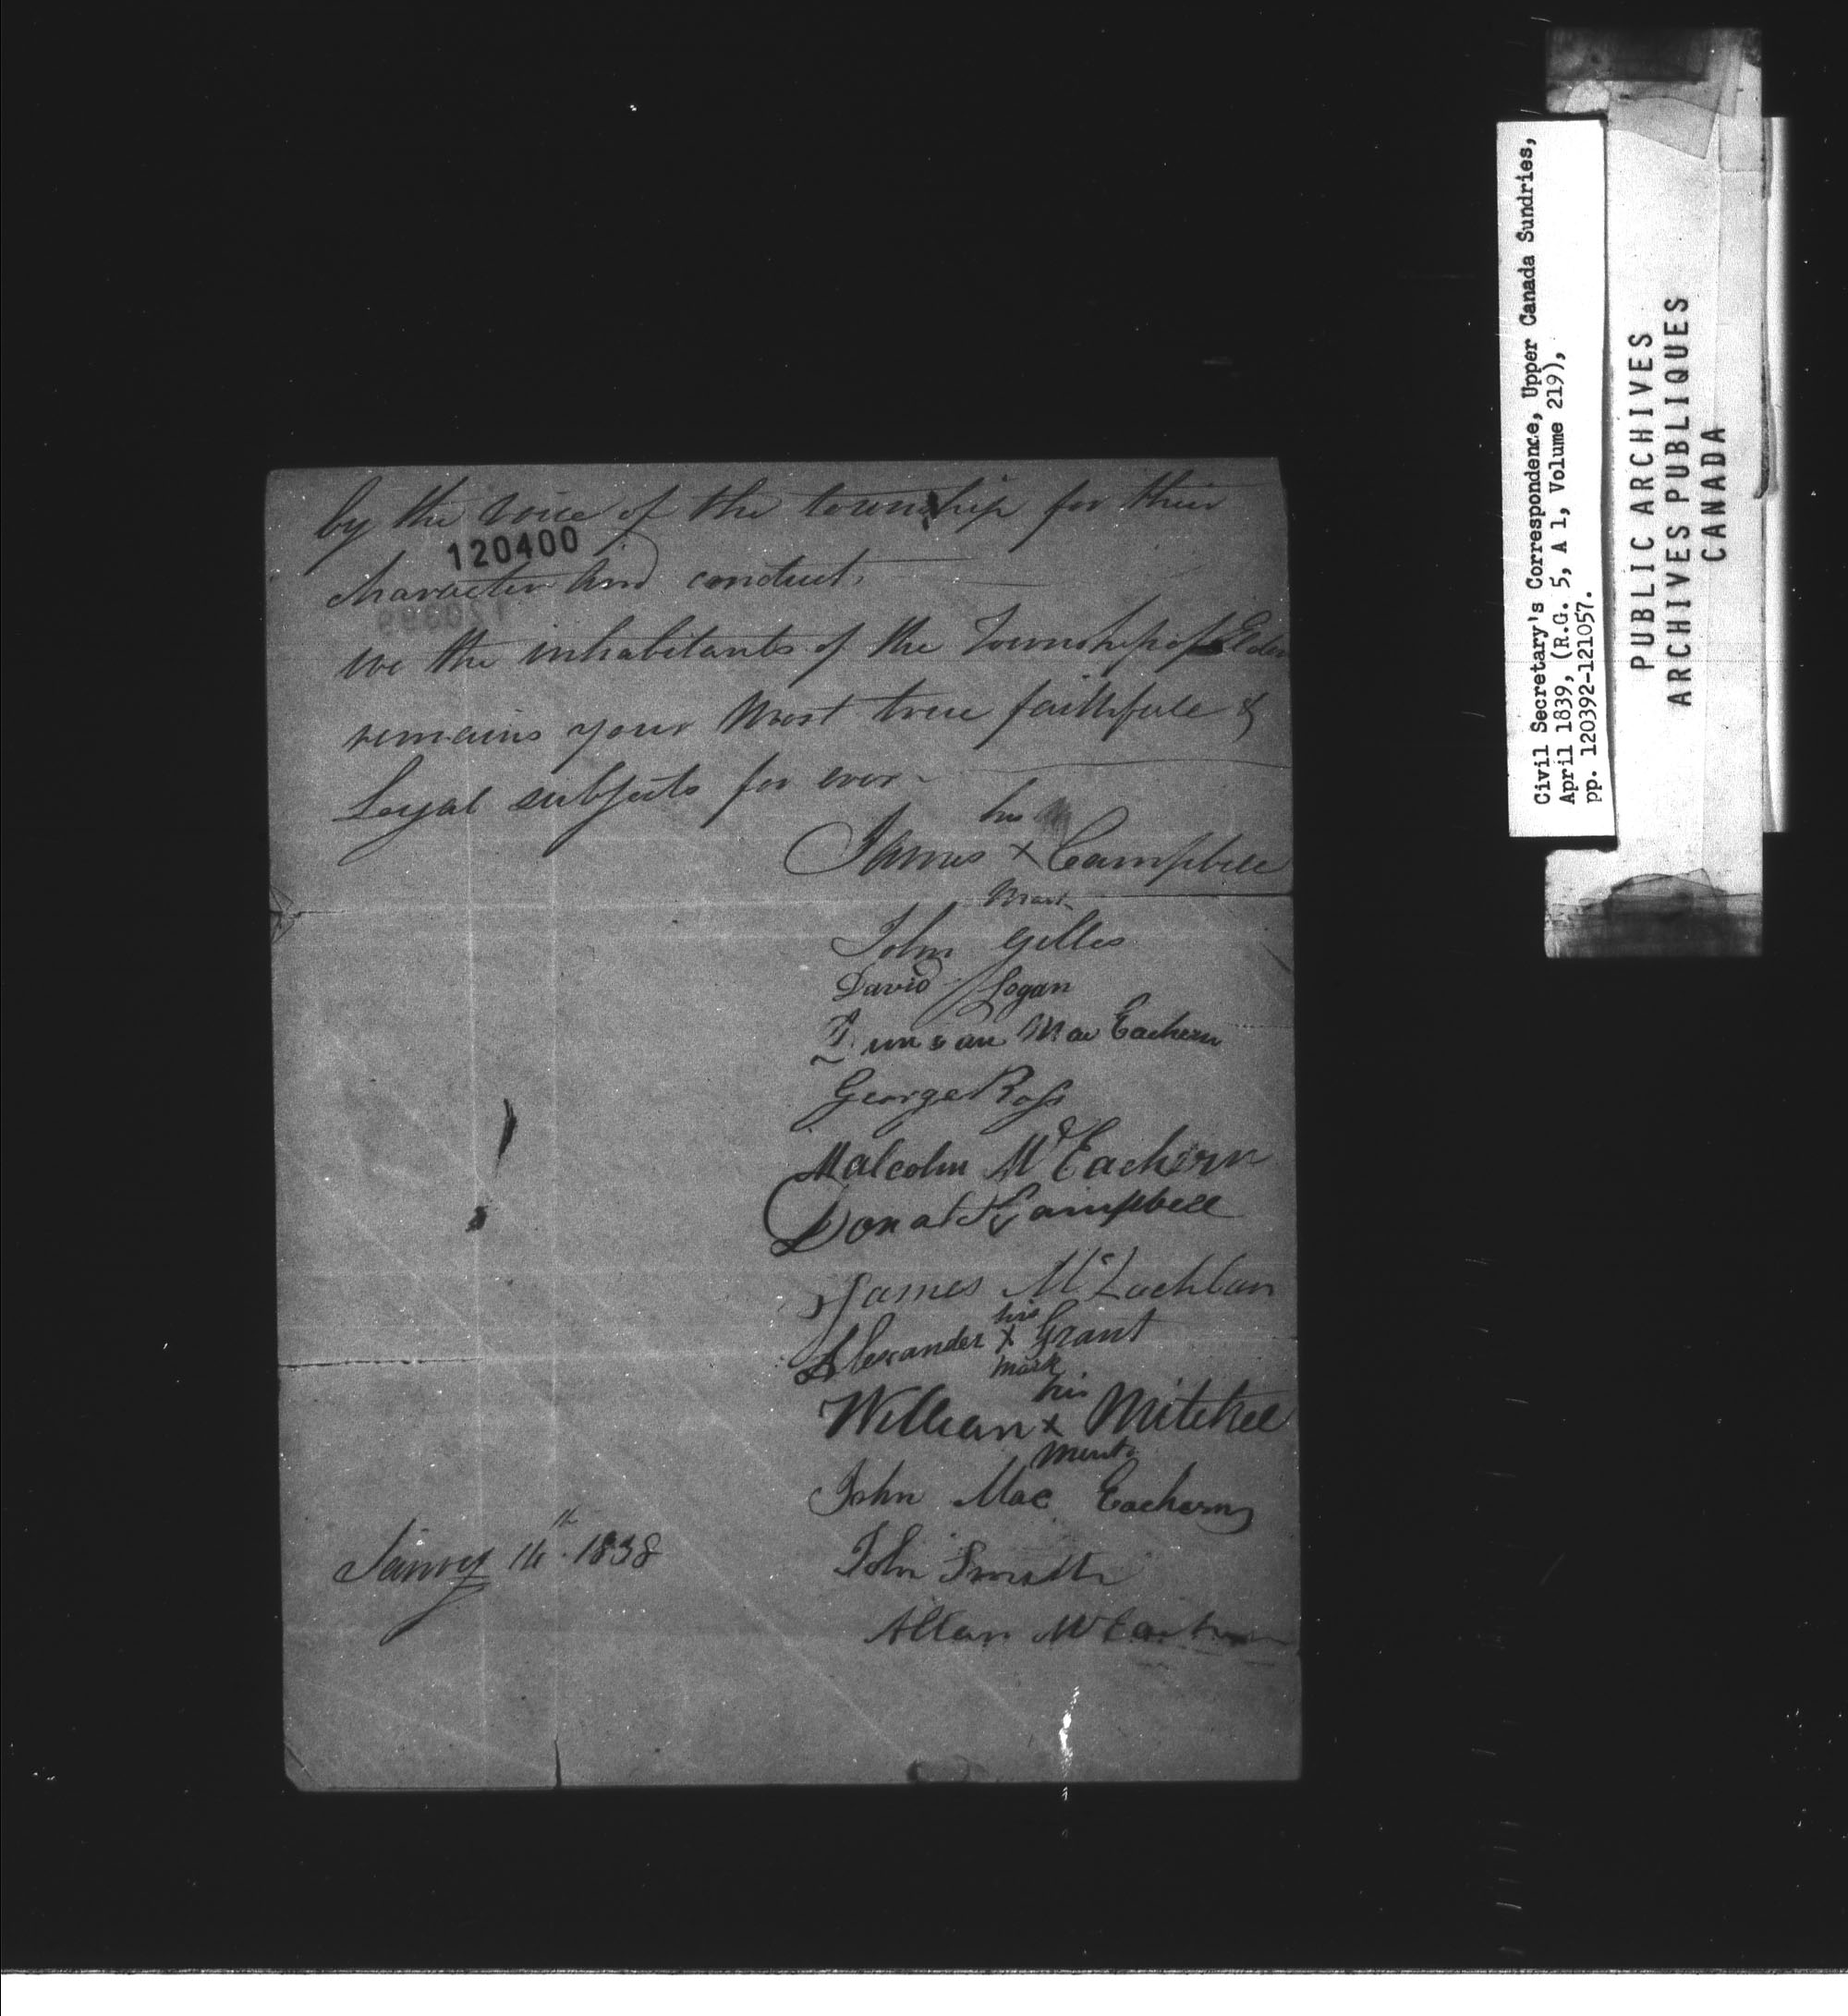 by the voice of the township for their
120400
character and conduct,
we the inhabitants of the Township of Eldon
remains your Most true faithfull &
Loyal subjects for ever
his
James x Campbell
Mark
John Gilles
David Logan
Duncan Mac Eachern
George Ross
Malcolm Mc Eachern
Donald Campbell
James Mc Lachlan
his
Alexander x Grant
mark
his
William x Mitchel
John Mac Eachern
John Smith
1838
Allan
Civil Secretary's Correspondence, Upper Canada Sundries,
April 1839, (R.G. 5, A 1, Volume 219),
pp. 120392-121057.
PUBLIC ARCHIVES
ARCHIVES PUBLIQUES
CANADA